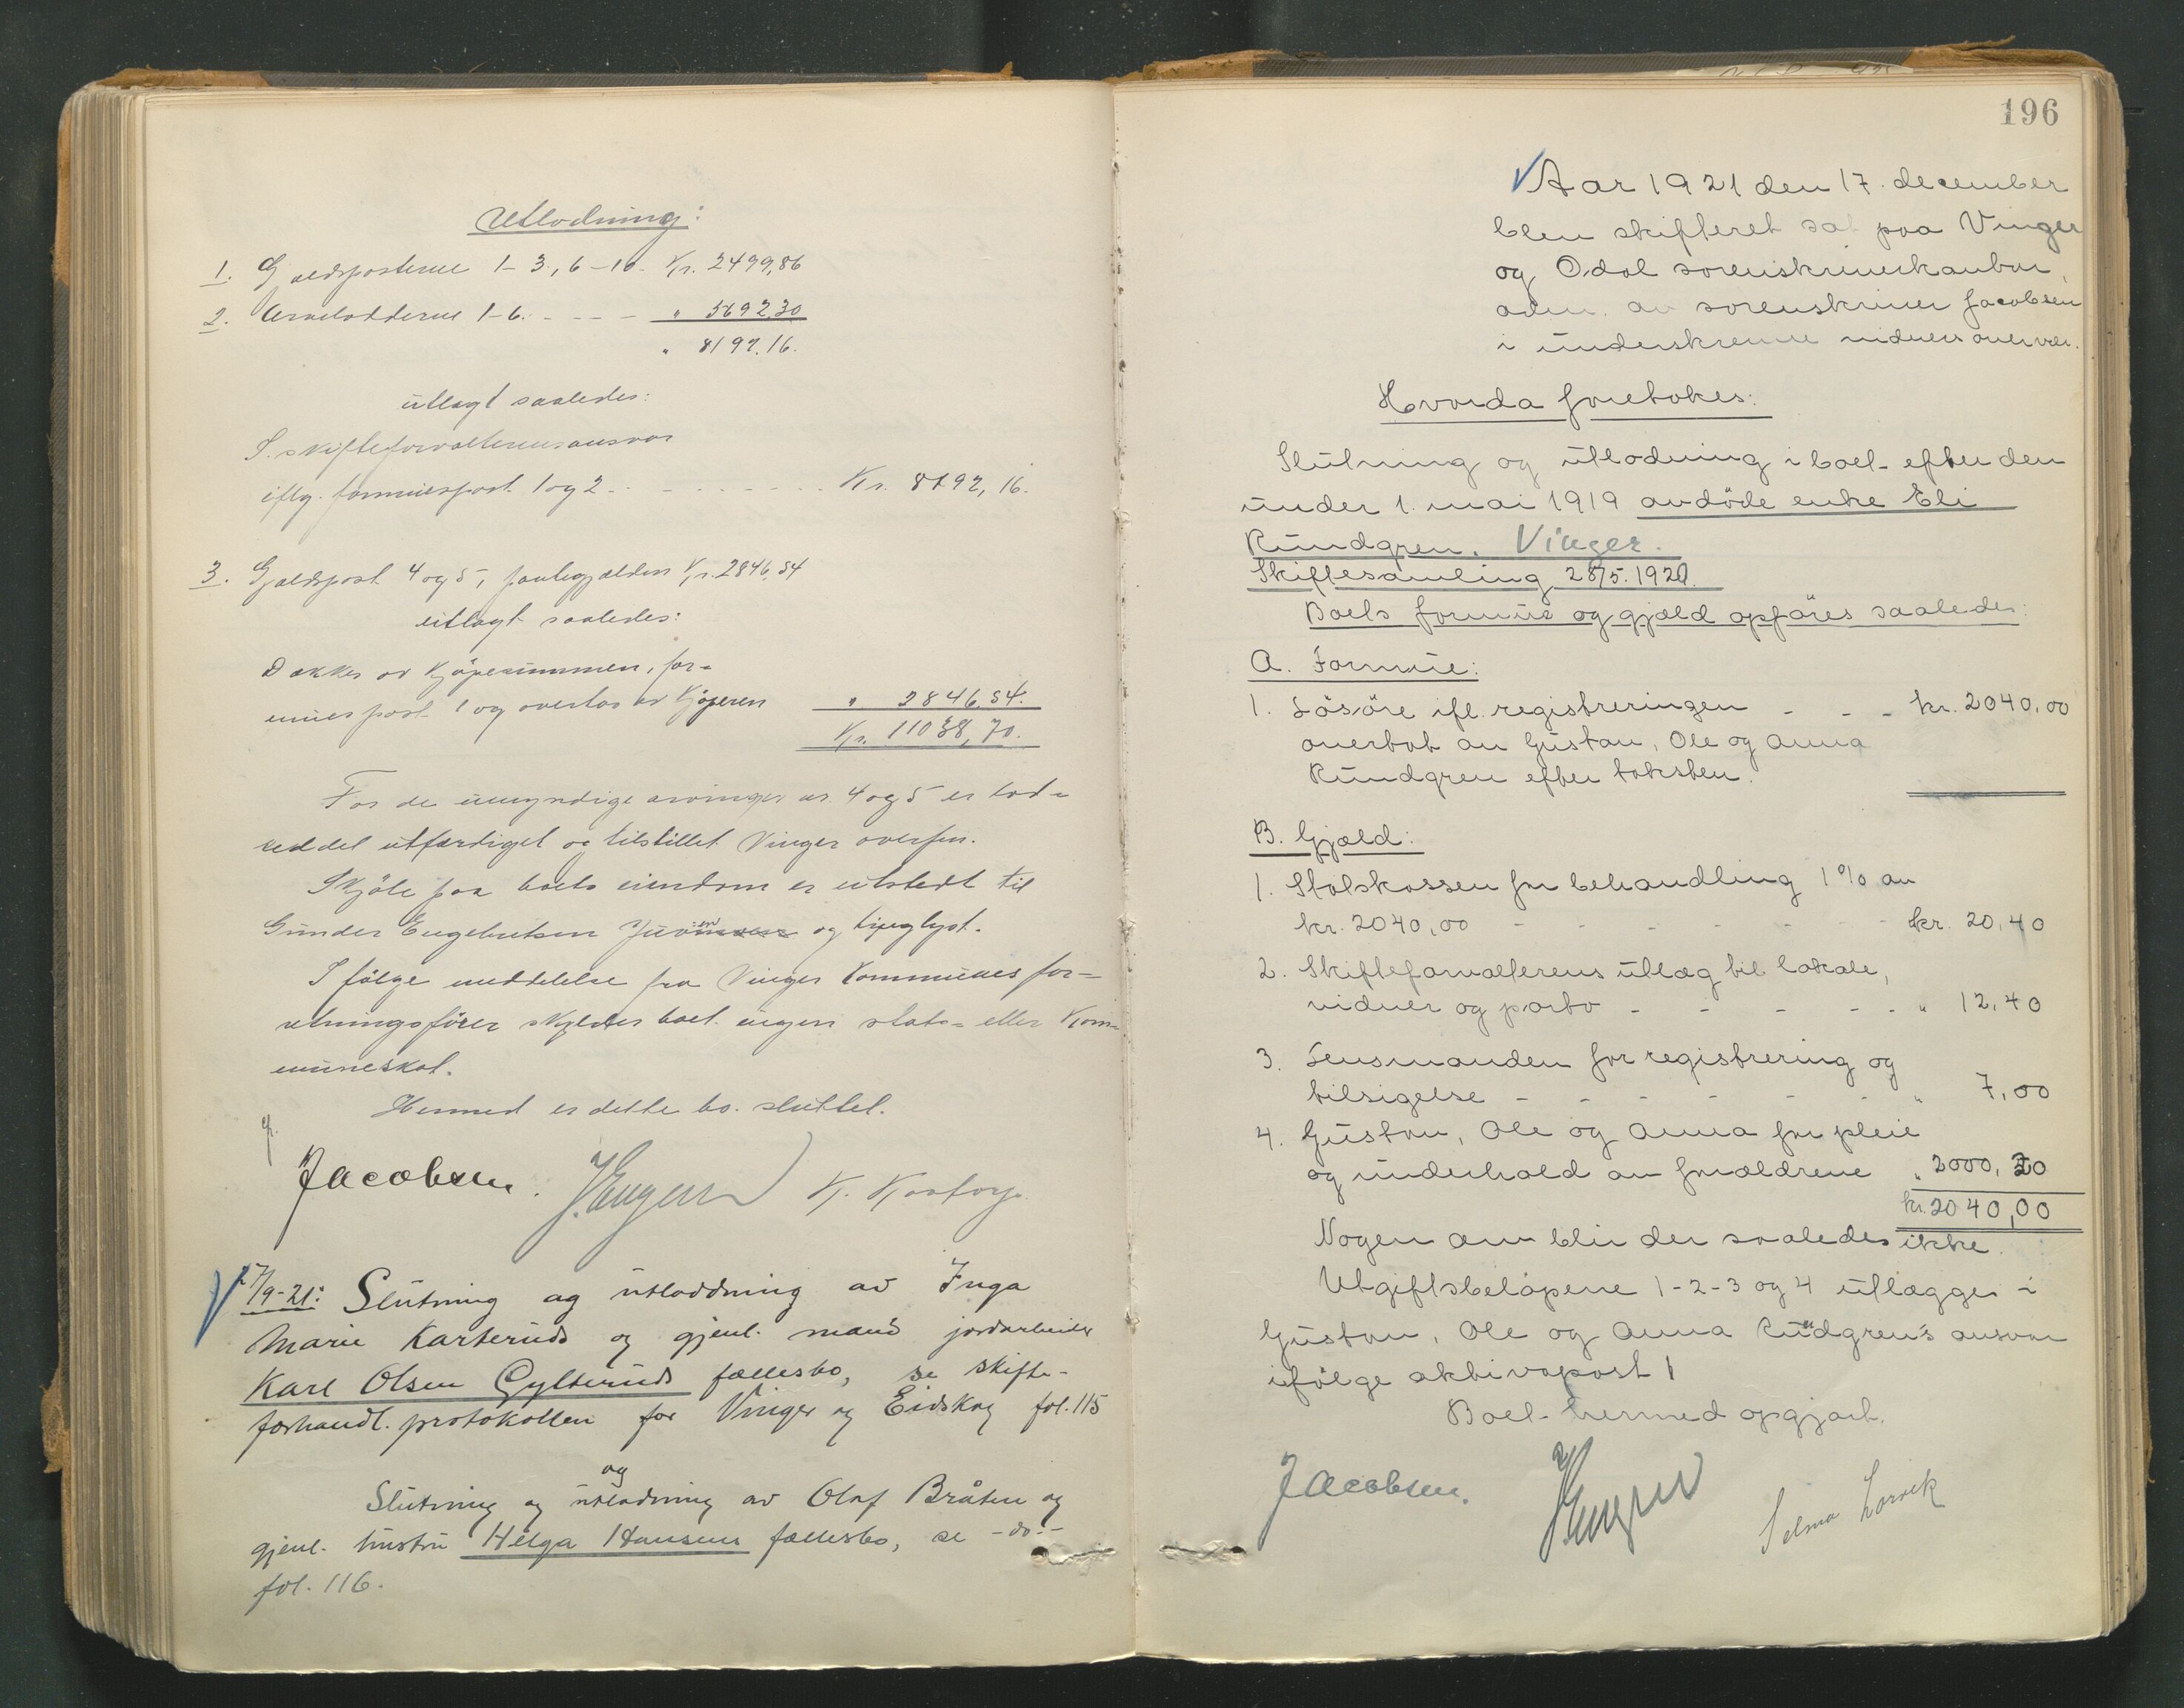 Utlodning:
1. Gjældsposterne 1-3, 6-10. Kr. 2499,86
2. Arvelodderne 1-6. - - - - " 5692,30
" 8192.16.
utlagt saaledes:
I. skifteforvalterens ansvar
iflg. formuespost 1 og 2 . . - - - - - - Kr. 8192,16.
3. Gjeldspost 4 og 5, pantegjælden Kr. 2846,54
utlagt saaledes:
Dækkes av kjøpesummen, for-
muespost 1 og overtas av kjøperen " 2846.54.
Kr. 11038,70.
For de umyndige arvinger nr. 4 og 5 er lod-
seddel utfærdiget og tilstillet Vinger overform.
Skjøte paa boets eiendom er utstedt til
Gunder Engebretsen og tinglyst.
Ifølge meddelelse fra Vinger kommunes for-
retningsfører skylder boet ingen stats- eller kom-
muneskat.
Hermed er dette bo sluttet.
Jacobsen. J. Engen K.
17/9-21: Slutning og utloddning av Inga
Marie Karterud og gjenl. mand jordarbeider
Karl Olsen Gylterud fællesbo, se skifte-
forhandl. protokollen for Vinger og Eidskog fol. 115
og
Slutning og utlodning av Olaf Bråten og
gjenl. hustru Helga Hansens fællesbo, se -do.-
fol. 116.
196
Aar 1921 den 17. december
blev skifteret sat paa Vinger
og Odal sorenskriverkontor,
adm. av sorenskriver Jacobsen
i underskrevne vidners overvær.
Hvorda foretokes:
Slutning og utlodning i boet efter den
under 1. mai 1919 avdøde enke Eli
Rundgren. Vinger.
Skiftesamling 28/5. 1920.
Boets formue og gjæld opføres saaledes:
A. Formue:
1. Løsøre ifl. registreringen - - - kr. 2040,00
overtat av Gustav, Ole og Anna
Rundgren efter taksten.
B. Gjæld:
1. Statskassen for behandling 1% av
kr. 2040,00 - - - - - - kr. 20,40
2. Skifteforvalterens utlæg til lokale,
vidner og porto - - - - - " 12,40
3. Lensmanden for registrering og
tilsigelse - - - - - - " 7,00
4. Gustav, Ole og Anna for pleie
og underhold av forældrene " 2000,20
kr. 2040,00
Nogen arv blir der saaledes ikke.
Utgiftsbeløpene 1-2-3 og 4 utlægges i
Gustav, Ole og Anna Rundgren's ansvar
ifølge aktivapost 1
Boet hermed opgjort.
Jacobsen. J. Engen Selma Larvik